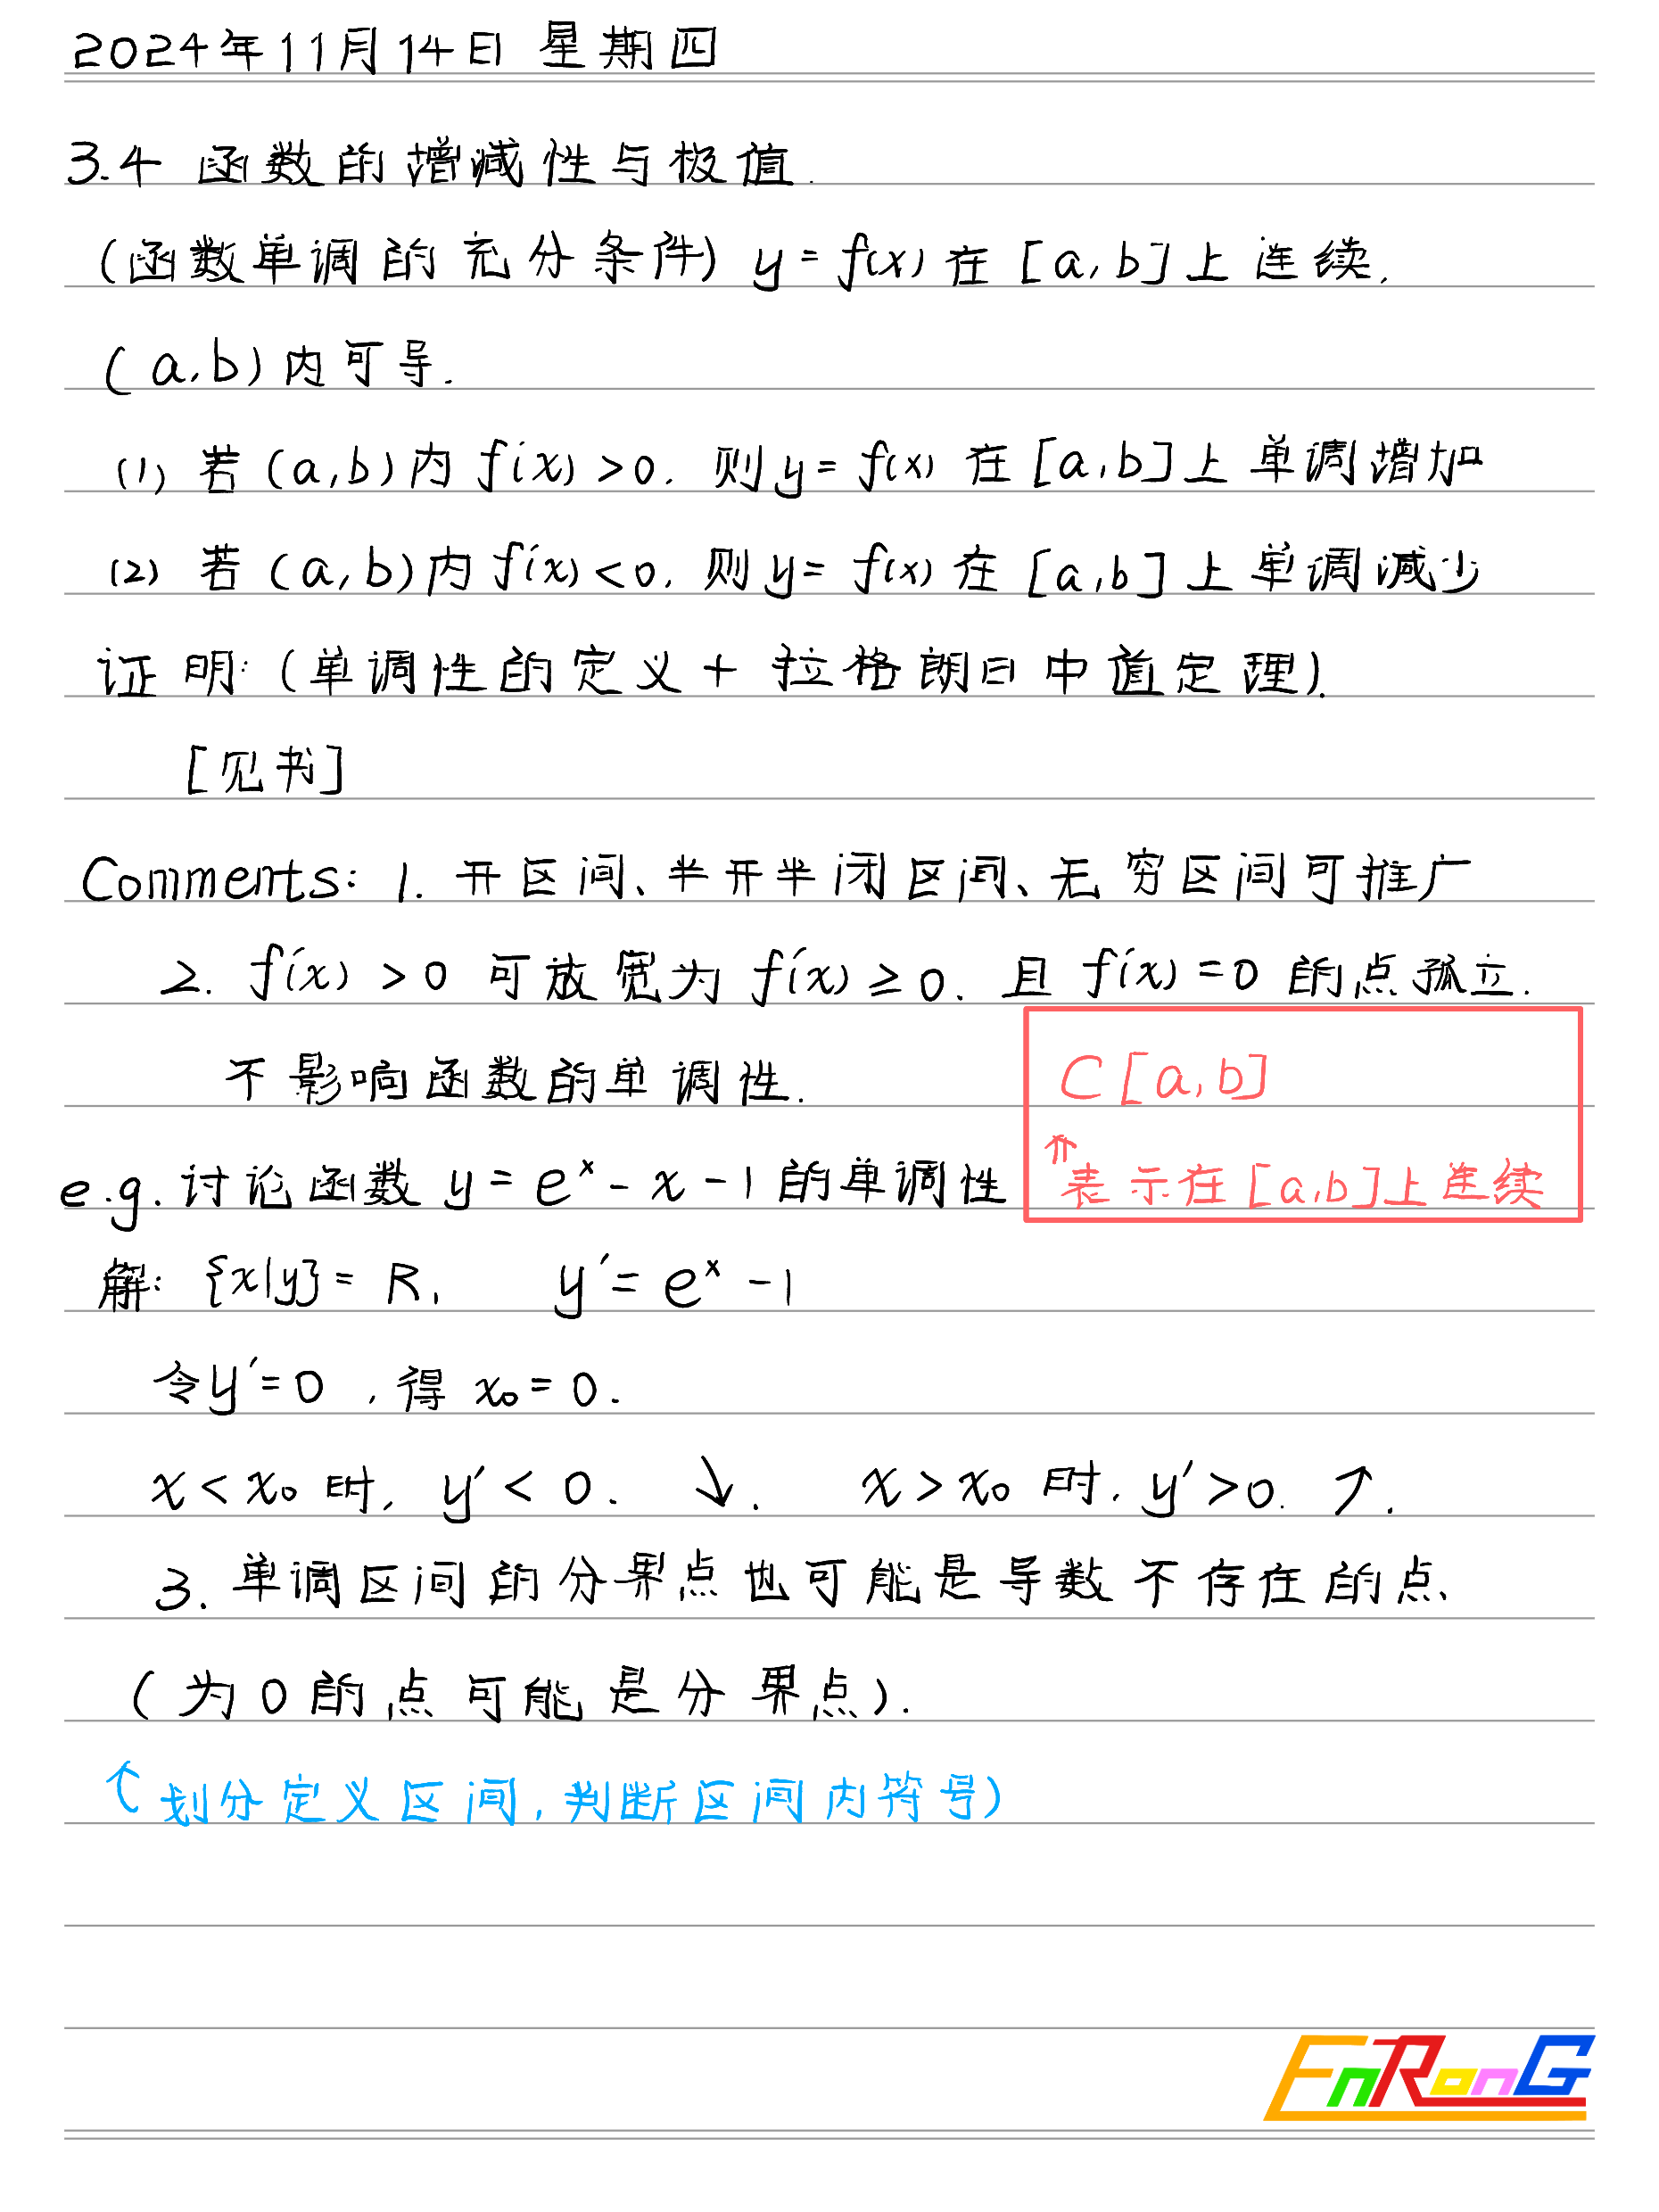 2024年11月14日 星期四
3.4 函数的增减性与极值.
(函数单调的充分条件) y=f(x) 在 [a,b] 上连续.
(a,b) 内可导.
(1) 若 (a,b) 内 f'(x)>0. 则 y=f(x) 在 [a,b] 上单调增加
(2) 若 (a,b) 内 f'(x)<0. 则 y=f(x) 在 [a,b] 上单调减少
证明: (单调性的定义 + 拉格朗日中值定理).
[见书]
Comments: 1. 开区间、半开半闭区间、无穷区间可推广
2. f'(x)>0 可放宽为 f'(x)≥0. 且 f'(x)=0 的点孤立.
不影响函数的单调性.
C[a,b]
↑表示在[a,b]上连续
e.g. 讨论函数 y=eˣ-x-1 的单调性
解: {x|y}=R, y'=eˣ-1
令y'=0, 得 x₀=0.
x<x₀ 时, y'<0. ↘. x>x₀ 时, y'>0. ↗.
3. 单调区间的分界点也可能是导数不存在的点、
(为0的点可能是分界点).
↑划分定义区间, 判断区间内符号)
EnRonG